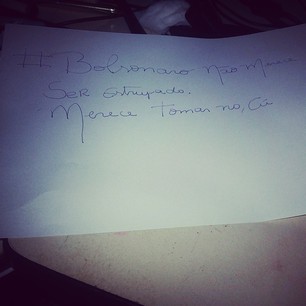 #Bolsonaro não Merece
Ser estrupado.
Merece tomar no, Cú